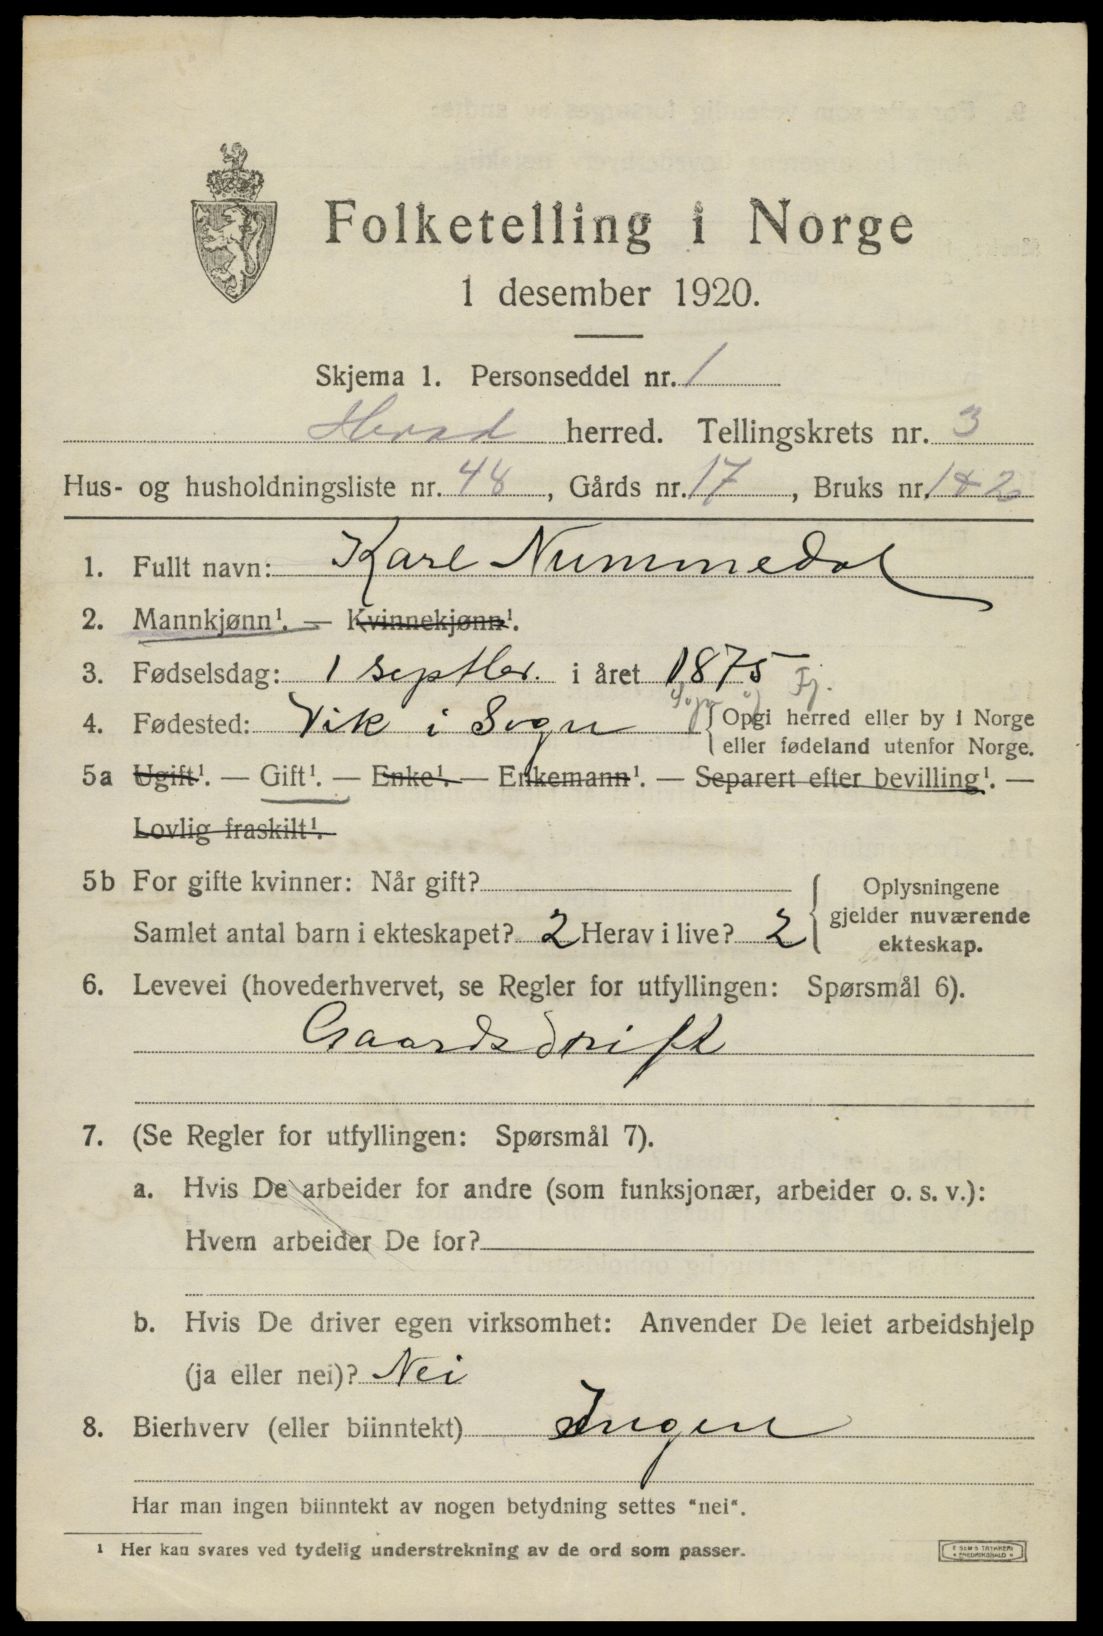 Folketelling i Norge
1 desember 1920.
Skjema 1. Personseddel nr. 1
Herad herred. Tellingskrets nr. 3
Hus- og husholdningsliste nr. 48, Gårds nr. 17, Bruks nr. 1 & 2
1. Fullt navn: Karl Nummedal
2. Mannkjønn¹. — Kvinnekjønn¹.
3. Fødselsdag: 1 septbr. i året 1875
4. Fødested: Vik i Sogn Sogn og Fj. {Opgi herred eller by i Norge
eller fødeland utenfor Norge.
5a Ugift¹. — Gift¹. — Enke¹. — Enkemann¹. — Separert efter bevilling¹. —
Lovlig fraskilt¹.
5b For gifte kvinner: Når gift?
Samlet antal barn i ekteskapet? 2 Herav i live? 2
{Oplysningene
gjelder nuværende
ekteskap.
6. Levevei (hovederhvervet, se Regler for utfyllingen: Spørsmål 6).
Gaardsdrift
7. (Se Regler for utfyllingen: Spørsmål 7).
a. Hvis De arbeider for andre (som funksjonær, arbeider o. s. v.):
Hvem arbeider De for?
b. Hvis De driver egen virksomhet: Anvender De leiet arbeidshjelp
(ja eller nei)? Nei
8. Bierhverv (eller biinntekt) Ingen
Har man ingen biinntekt av nogen betydning settes "nei".
¹ Her kan svares ved tydelig understrekning av de ord som passer.